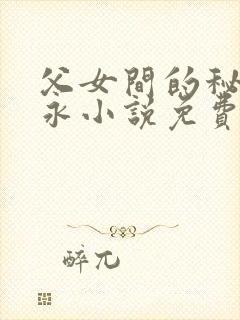 父女間的秘
永小説免費
醉兀